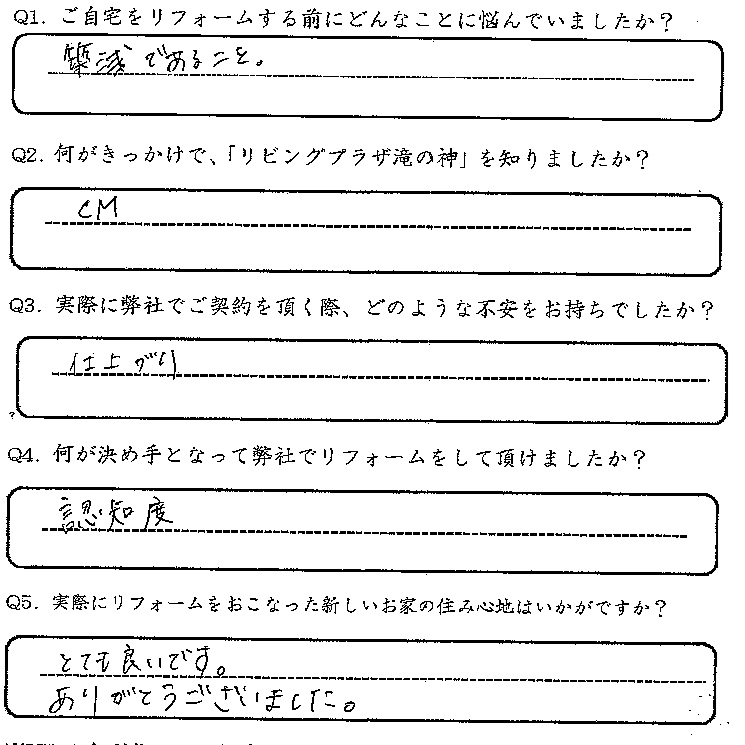 Q1. ご自宅をリフォームする前にどんなことに悩んでいましたか？
築浅であること。
Q2. 何がきっかけで、「リビングプラザ滝の神」を知りましたか？
CM
Q3. 実際に弊社でご契約を頂く際、どのような不安をお持ちでしたか？
仕上がり
Q4. 何が決め手となって弊社でリフォームをして頂けましたか？
認知度
Q5. 実際にリフォームをおこなった新しいお家の住み心地はいかがですか？
とても良いです。
ありがとうございました。